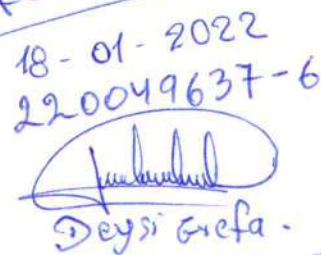 18-01-2022
220049637-6
Deysi Grefa.